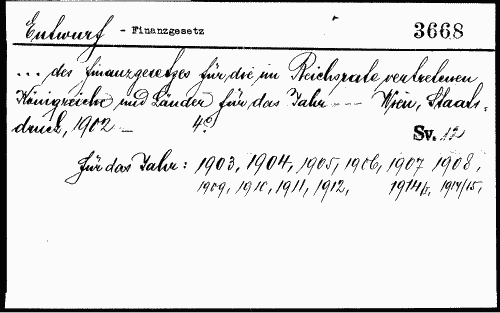 Entwurf - Finanzgesetz 3668
... des Finanzgesetzes für die im Reichsrate vertretenen
Königreiche und Länder für das Jahr --- Wien, Staats-
druck, 1902 – 4° Sv. 12
für das Jahr: 1903, 1904, 1905, 1906, 1907 1908,
1909, 1910, 1911, 1912, 1914/15,